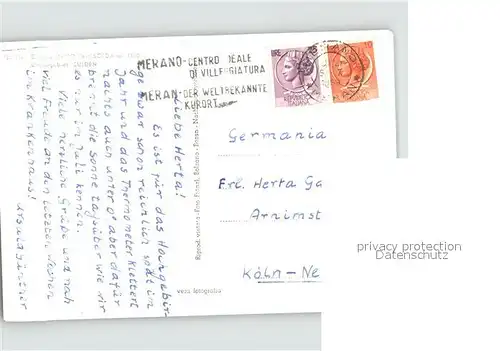 MERANO-CENTRO IDEALE
DI VILLEGGIATURA
MERAN-DER WELTBEKANNTE
KURORT
LIRE
10
Liebe Herta!
Es ist für das Hochgebir-
ge zwar schon reichlich spät im
Jahr und das Thermometer klettert
nachts auch unter 0° aber dafür
brennt die Sonne tagsüber wie wir
es nur im Juli kennen.
Viele herzliche Grüße und noch
viel Freude an den letzten Wochen
im Krankenhaus!
Germania
Frl. Herta Ga
Arnimst
Köln-Ne
vera fotografia
privacy protection
Datenschutz